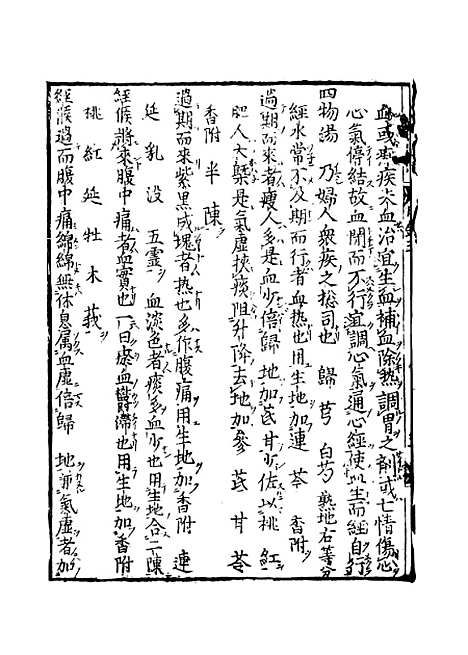 血或暴疾失血治宜生血補血除熱調胃之劑或七情傷心
心氣停結故血閉而不行宜調心氣通心經使血生而經自行
四物湯　乃婦人衆疾之捴司也　歸　芎　白芍　熟地右等分
經水常不及期而行者血熱也用生地加連　芩　香附
過期而來者瘦人多是血少倍歸　地加芪甘少佐以桃　紅
肥人大槩是氣虛挾痰阻升降去地加參　芪　甘　芩
香附　半　陳
過期而來紫黑成塊者熱也多作腹痛用生地加香附　連
延　乳　没　五靈　血淡色者痰多血少也用生地合二陳
經候將來腹中痛者血實也一曰瘀血欝滯也用生地加香附
桃　紅　延　牡　木　莪
經候過而腹中痛綿綿無休息属血虛倍歸　地亦氣虛者加